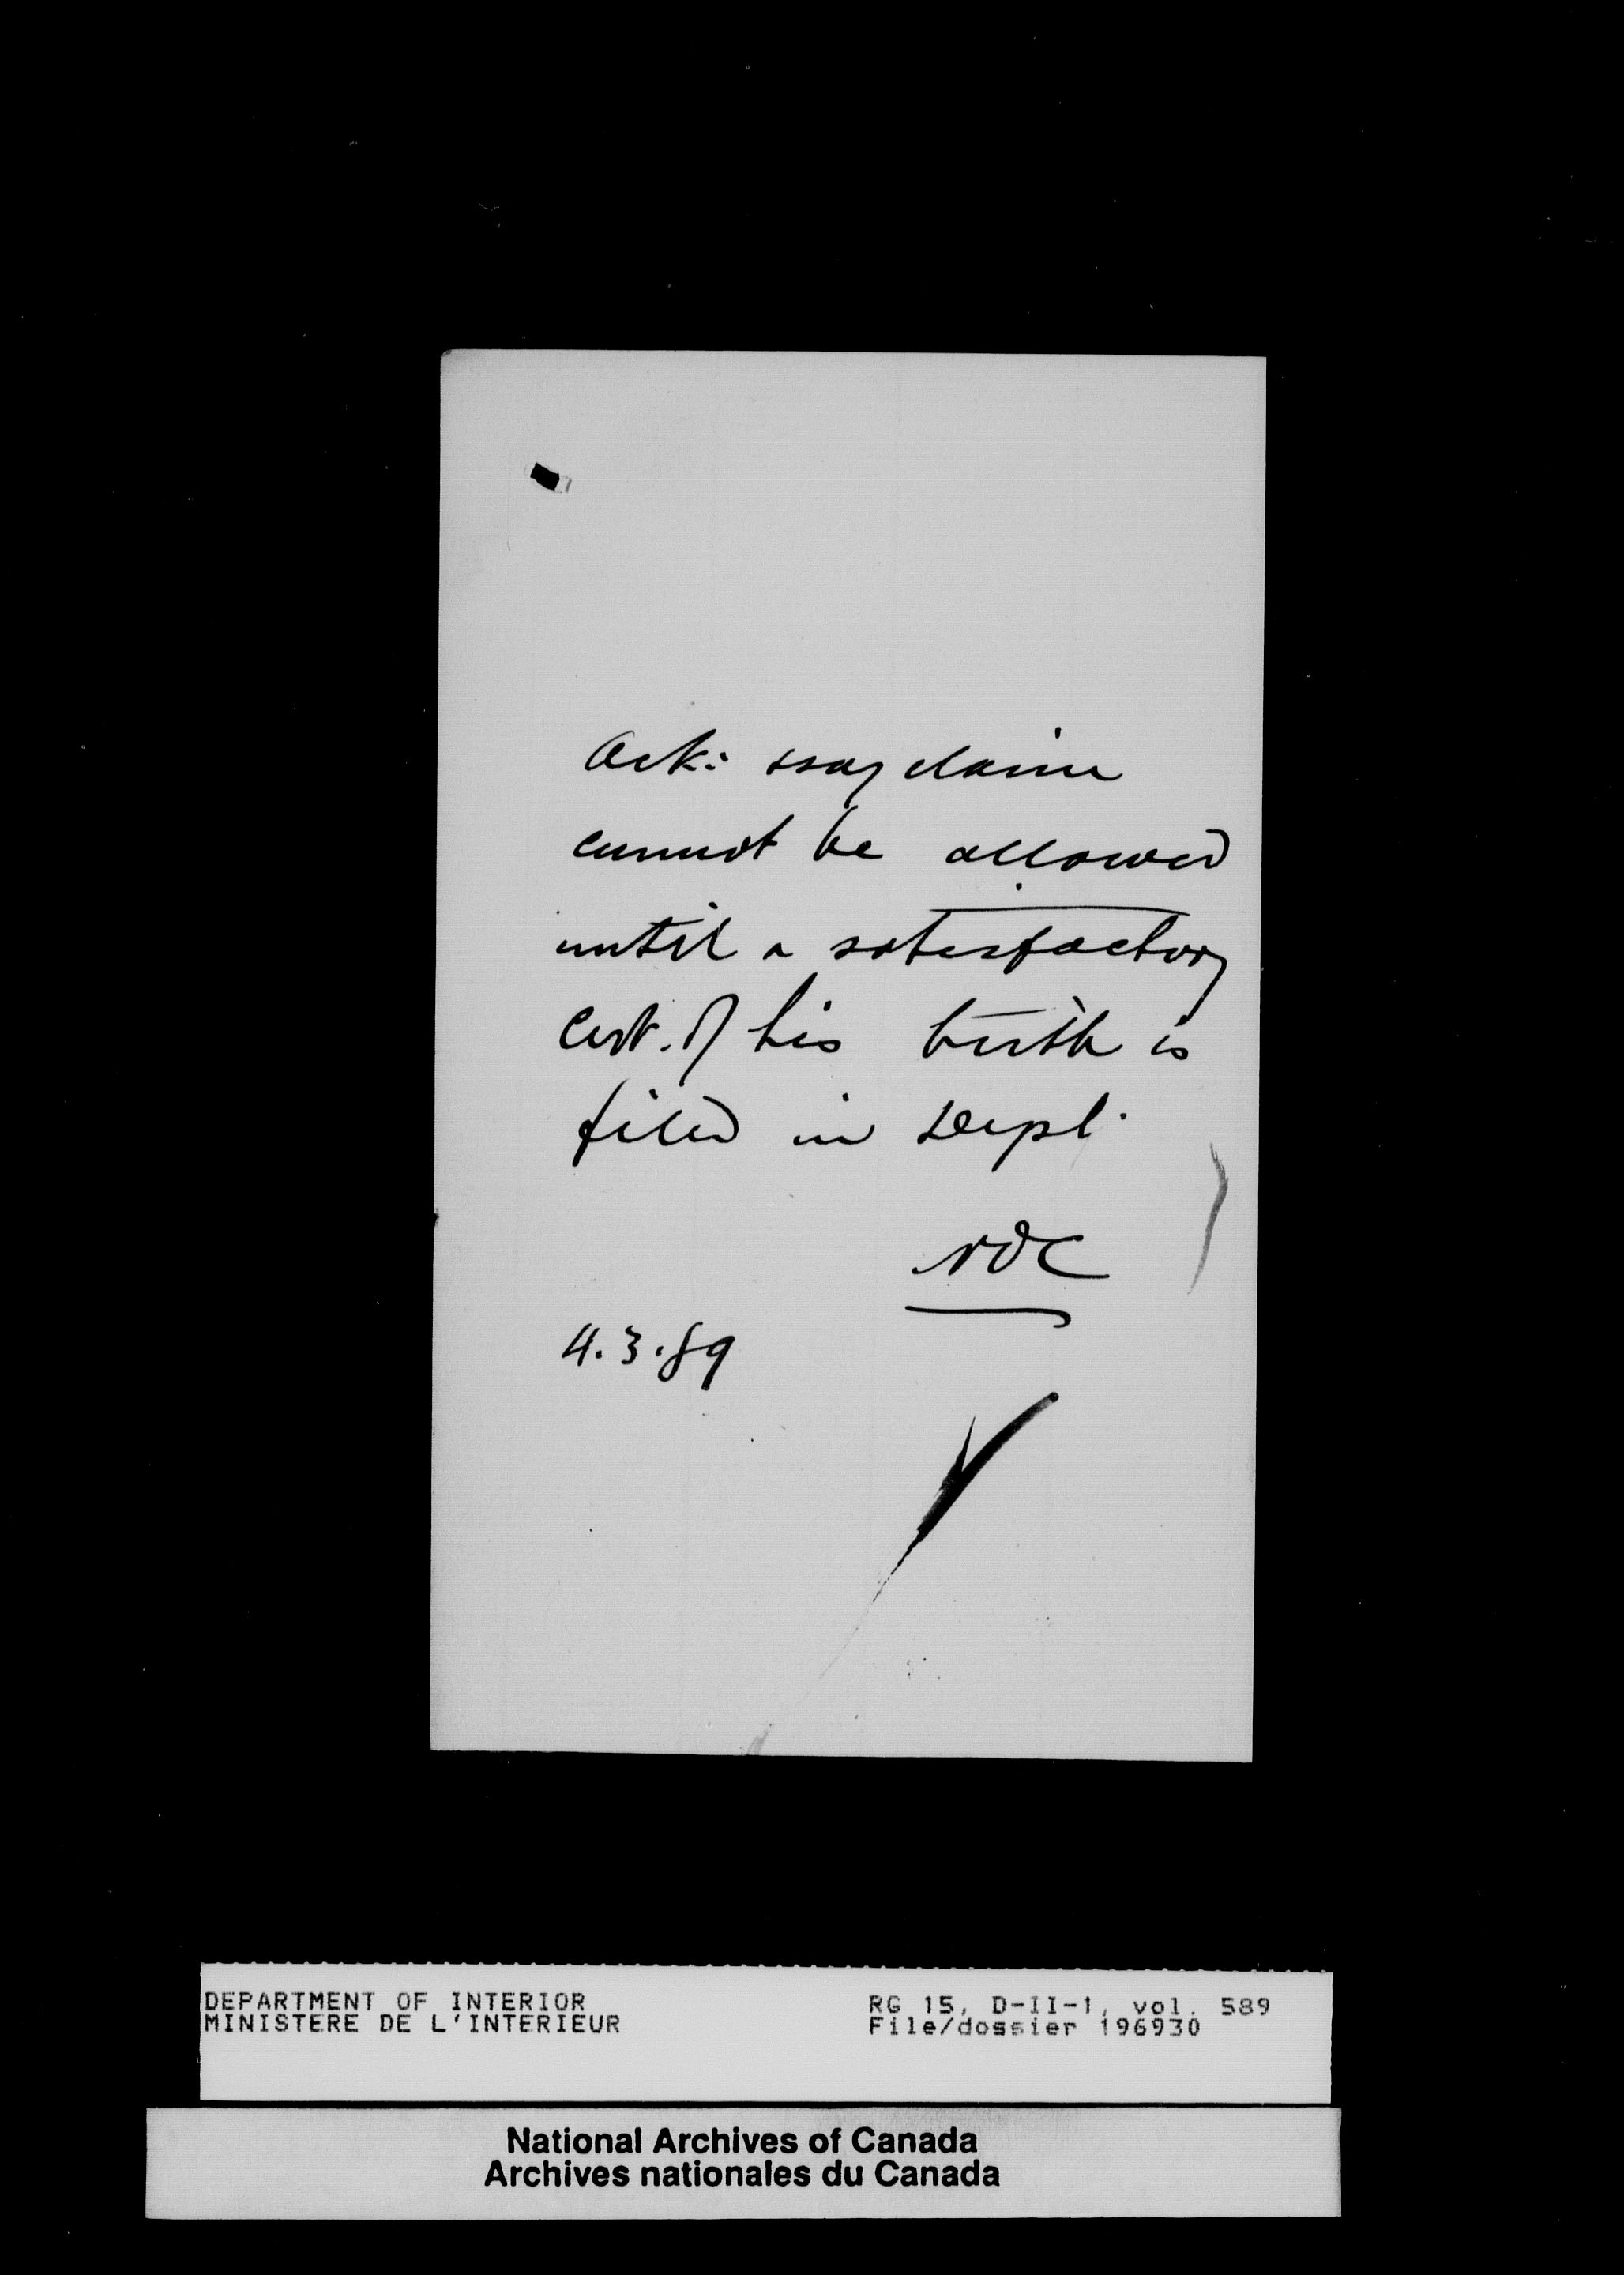 Ack: & say claim
cannot be allowed
until a satisfactory
cert. of his birth is
filed in Dept.
NOC
4.3.89
DEPARTMENT OF INTERIOR
MINISTERE DE L'INTERIEUR
RG 15, D-II-1, vol. 589
File/dossier 196930
National Archives of Canada
Archives nationales du Canada